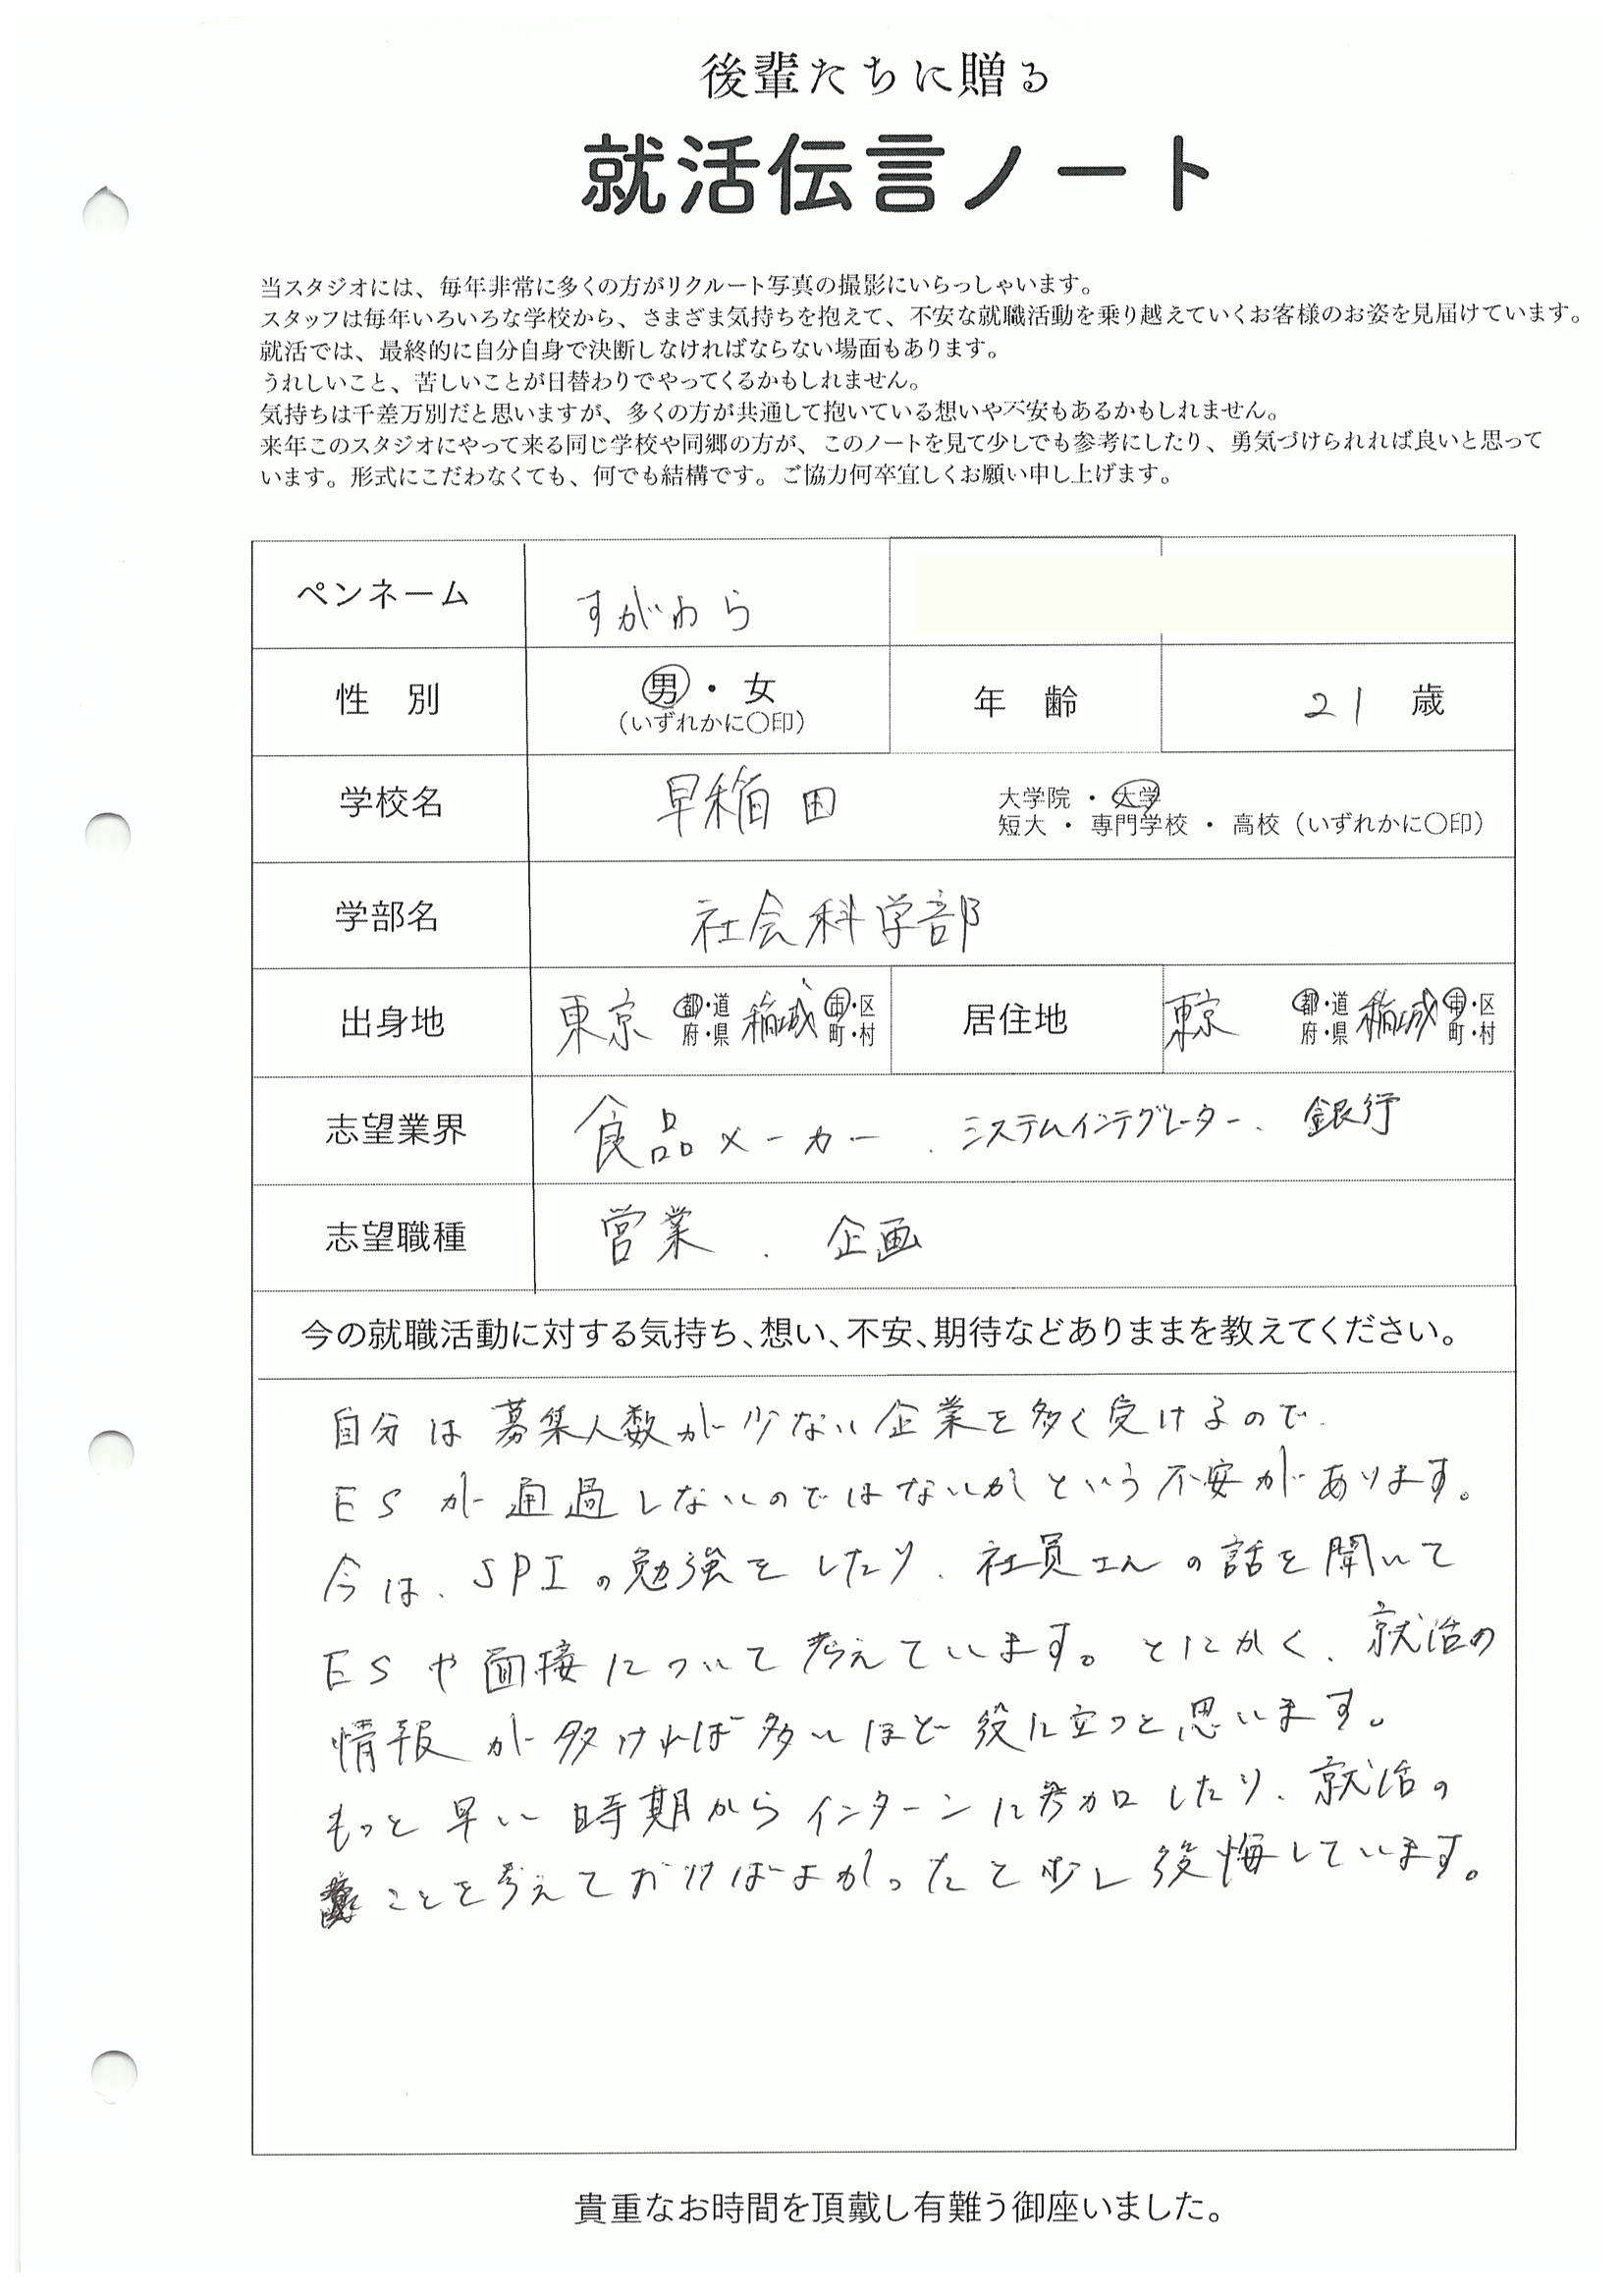 後輩たちに贈る
就活伝言ノート
当スタジオには、毎年非常に多くの方がリクルート写真の撮影にいらっしゃいます。
スタッフは毎年いろいろな学校から、さまざま気持ちを抱えて、不安な就職活動を乗り越えていくお客様のお姿を見届けています。
就活では、最終的に自分自身で決断しなければならない場面もあります。
うれしいこと、苦しいことが日替わりでやってくるかもしれません。
気持ちは千差万別だと思いますが、多くの方が共通して抱いている想いや不安もあるかもしれません。
来年このスタジオにやって来る同じ学校や同郷の方が、このノートを見て少しでも参考にしたり、勇気づけられれば良いと思って
います。形式にこだわなくても、何でも結構です。ご協力何卒宜しくお願い申し上げます。
ペンネーム すがわら
性 別 男・女 年 齢 21 歳
(いずれかに〇印)
学校名 早稲田 大学院 ・ 大学
短大 ・ 専門学校 ・ 高校 (いずれかに〇印)
学部名 社会科学部
出身地 東京 都・道 稲城 市・区 居住地 東京 都・道 稲城 市・区
府・県 町・村 府・県 町・村
志望業界 食品メーカー、システムインテグレーター、銀行
志望職種 営業、企画
今の就職活動に対する気持ち、想い、不安、期待などありままを教えてください。
自分は募集人数が少ない企業を多く受けるので、
ESが通過しないのではないかという不安があります。
今は、SPIの勉強をしたり、社員さんの話を聞いて
ESや面接について考えています。とにかく、就活の
情報が多ければ多いほど役に立つと思います。
もっと早い時期からインターンに参加したり、就活の
ことを考えておけばよかったと少し後悔しています。
貴重なお時間を頂戴し有難う御座いました。